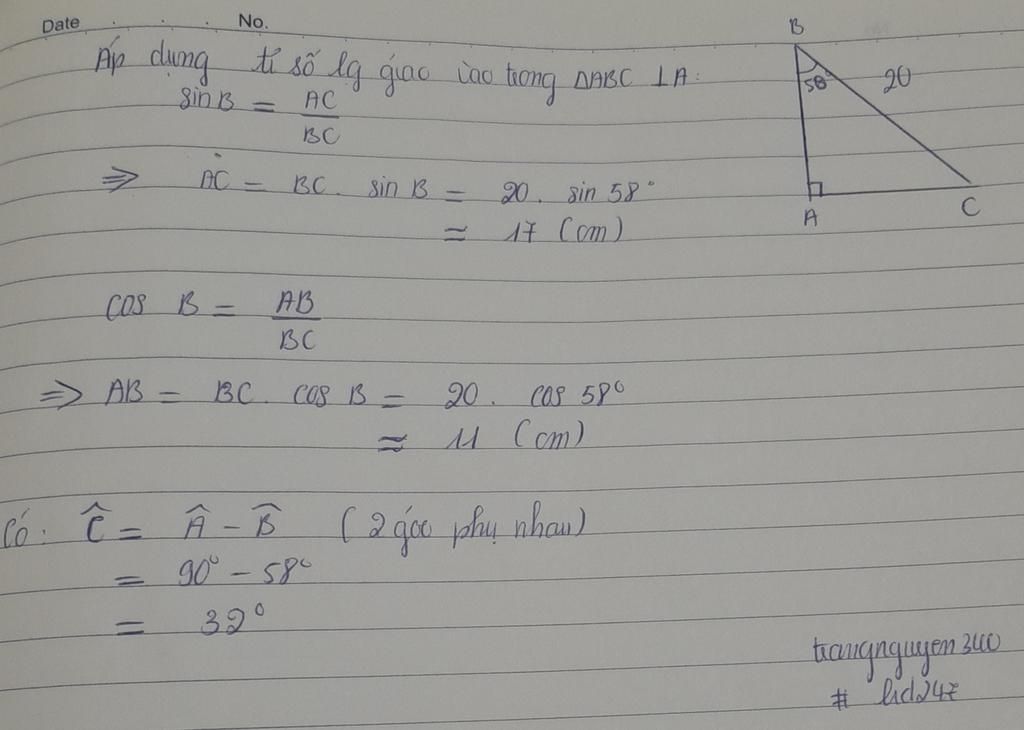 Date . . . No.
Áp dụng tỉ số lg giác vào trong ΔABC ⊥A:
sin B = AC
BC
⇒ AC = BC. sin B = 20. sin 58°
≈ 17 (cm)
cos B = AB
BC
⇒ AB = BC. cos B = 20. cos 58°
≈ 11 (cm)
Có: Ĉ = Â - B̂ (2 góc phụ nhau)
= 90° - 58°
= 32°
B
58°
20
A
C
# hd247